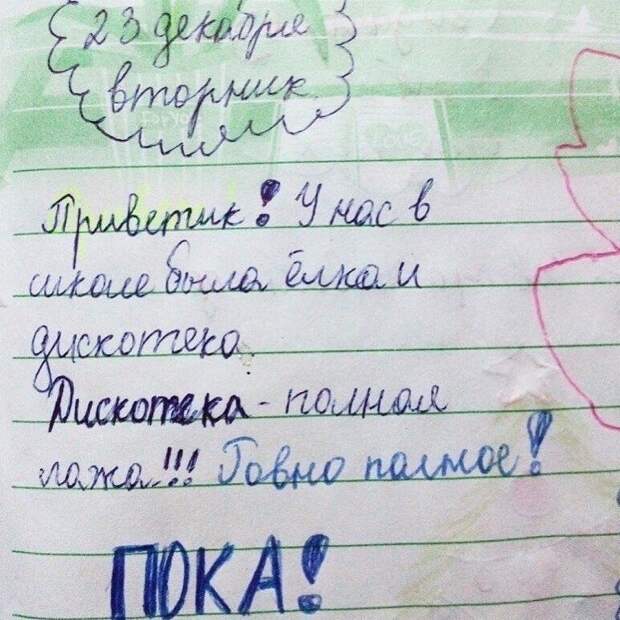 23 декабря
вторник.
Приветик! У нас в
школе была ёлка и
дискотека.
Дискотека - полная
лажа!!! Говно полное!
ПОКА!